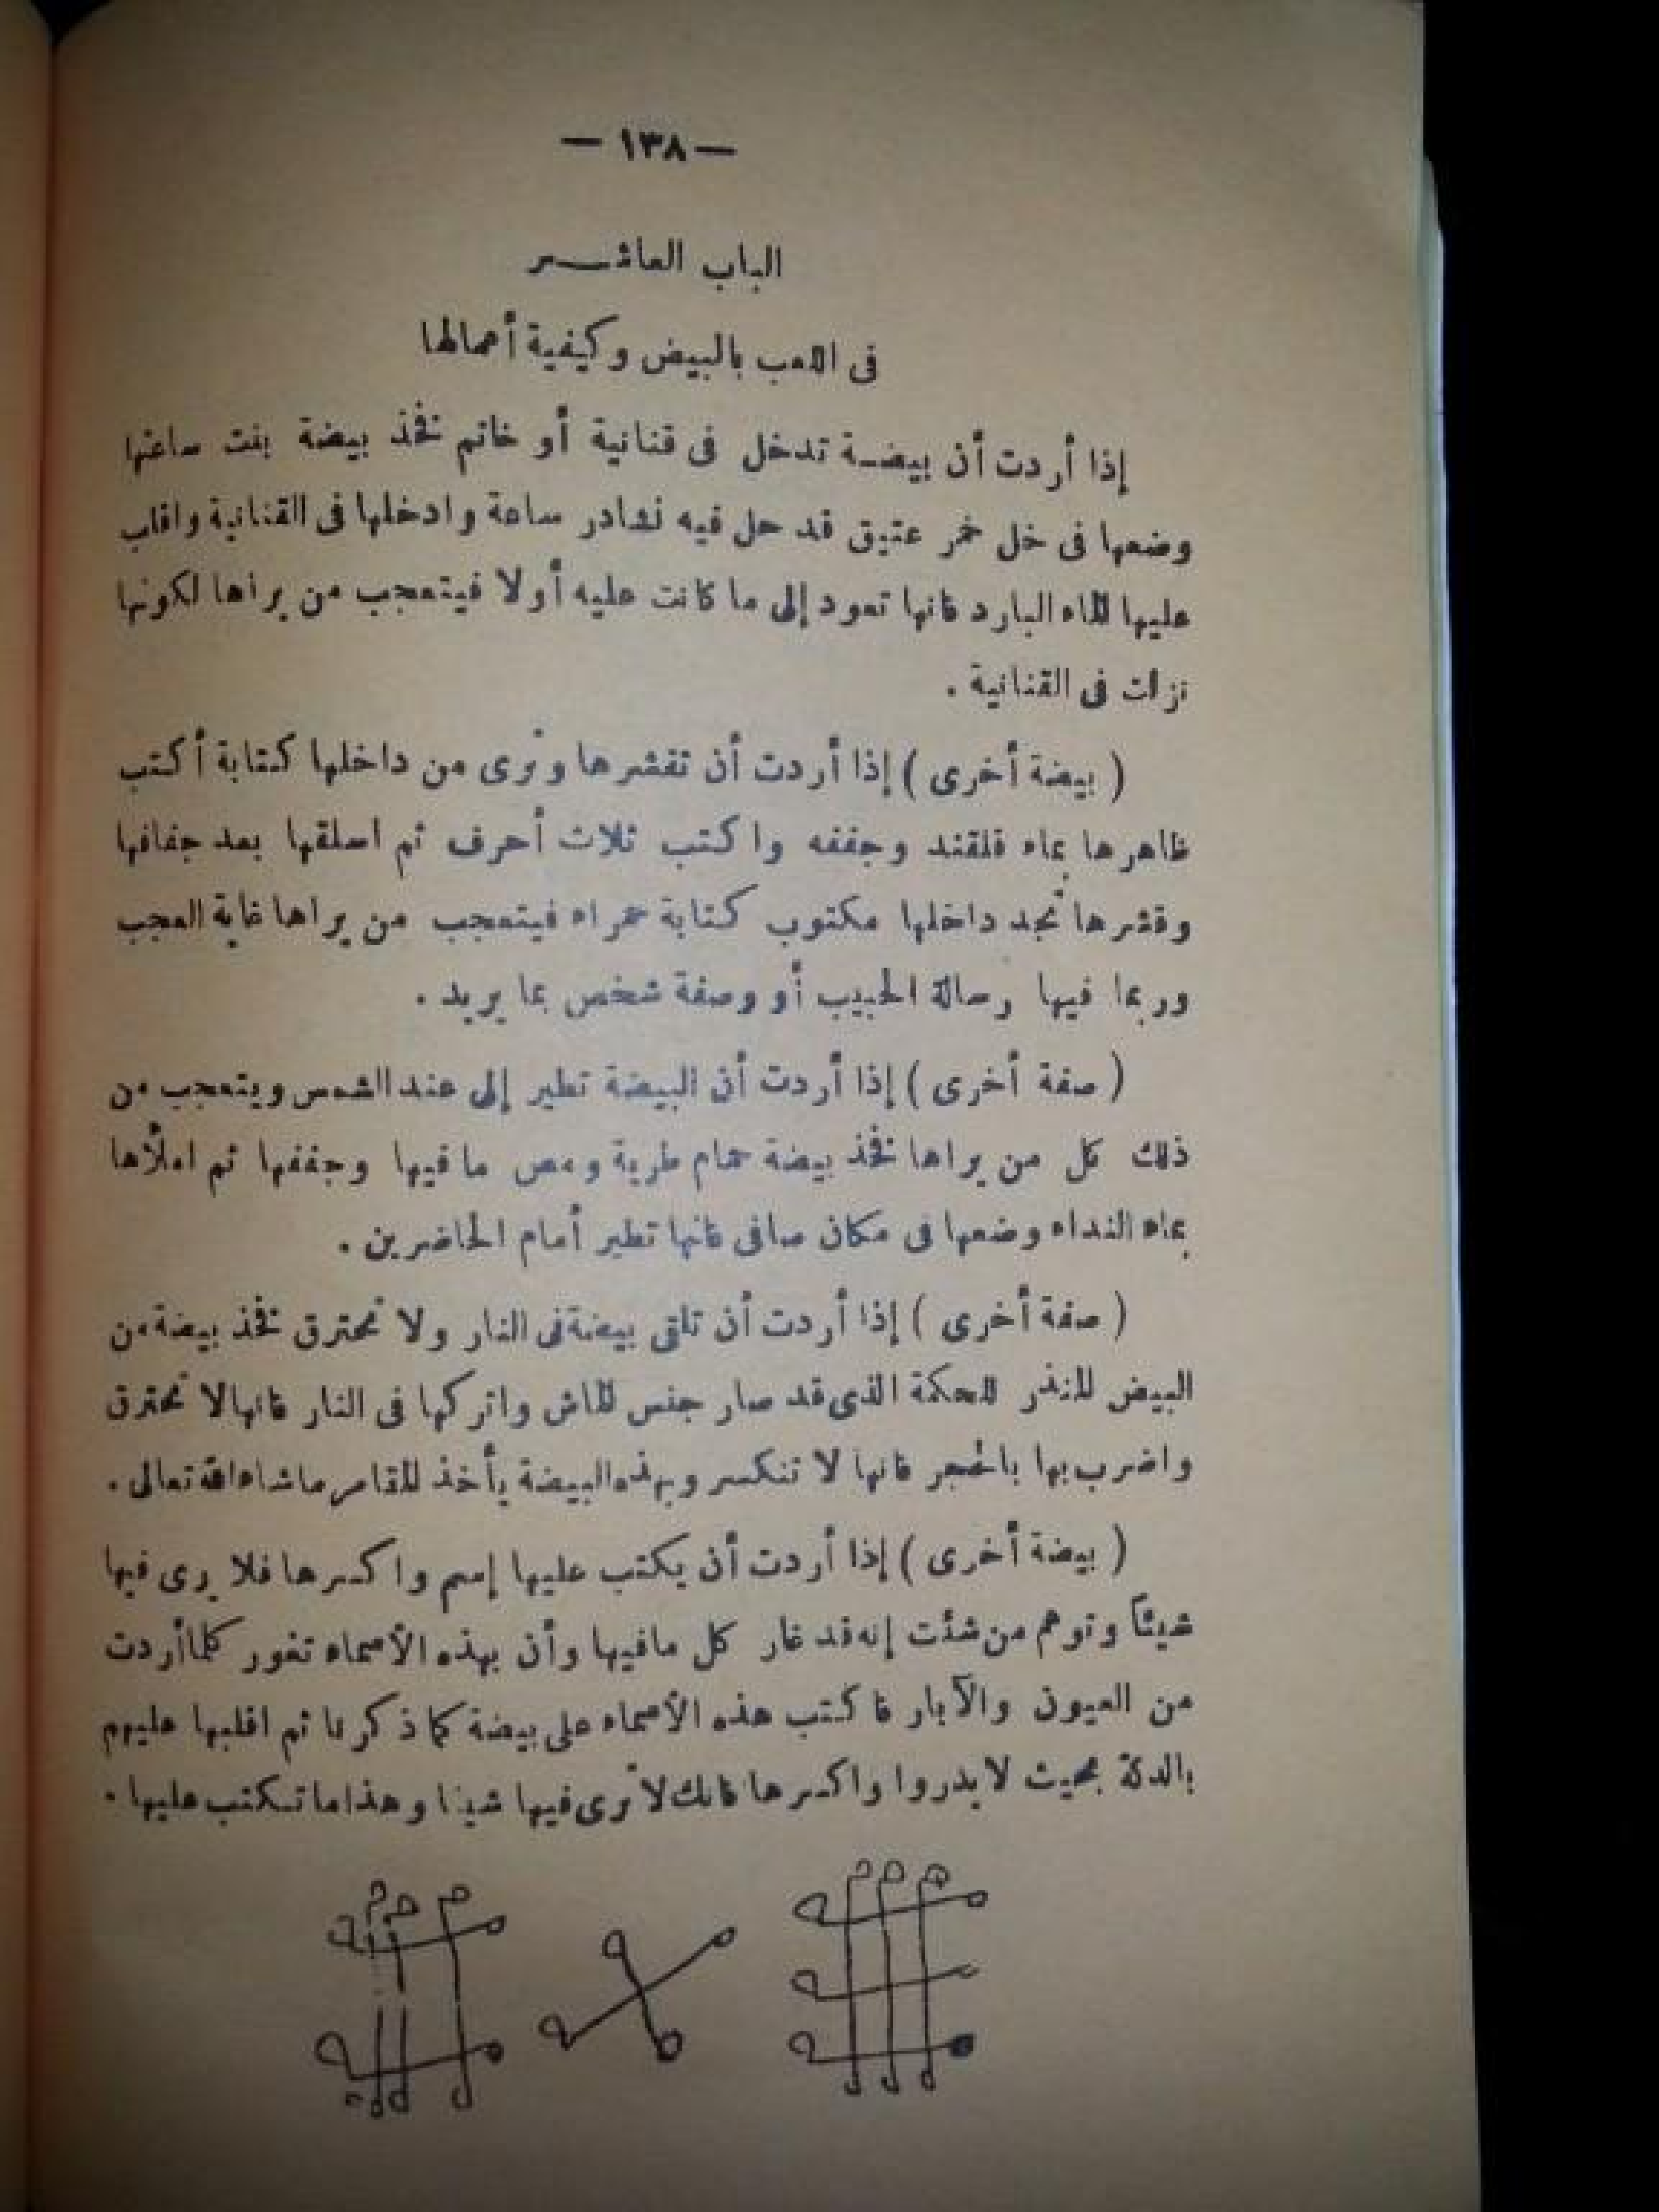 — ١٣٨ —
الباب العاشـــر
فى اللعب بالبيض وكيفية أعمالها
إذا أردت أن بيضـة تدخل فى قنانية أو خاتم نخذ بيضة بنت ساعتها
وضعها فى خل خمر عتيق قد حل فيه نشادر ساعة وادخلها فى القنانية واقلب
عليها الماء البارد فانها تعود إلى ما كانت عليه أولا فيتعجب من يراها لكونها
نزلت فى القنانية .
( بيضة أخرى ) إذا أردت أن تقشرها وترى من داخلها كتابة أكتب
ظاهرها بماء قلقند وجففه واكتب ثلاث أحرف ثم اسلقها بعد جفافها
وقشرها تجد داخلها مكتوب كتابة حمراء فيتعجب من يراها غاية العجب
وربما فيها رسالة الحبيب أو وصفة شخص بما يريد .
( صفة أخرى ) إذا أردت أن البيضة تطير إلى عند الشمس ويتعجب من
ذلك كل من يراها نخذ بيضة حمام طرية ومص ما فيها وجففها ثم املأها
بماء النداء وضعها فى مكان صافى فانها تطير أمام الحاضرين .
( صفة أخرى ) إذا أردت أن تلقى بيضة فى النار ولا تحترق نخذ بيضة من
البيض المنذر للحكمة الذى قد صار جنس الماش واتركها فى النار فانها لا تحترق
واضرب بها بالحجر فانها لا تنكسر وبهذه البيضة يأخذ المقامر ما شاء الله تعالى .
( بيضة أخرى ) إذا أردت أن يكتب عليها إسم واكسرها فلا يرى فيها
شيئاً وتوهم من شئت إنه قد غار كل ما فيها وأن بهذه الأسماء تغور كلما أردت
من العيون والآبار فاكتب هذه الأسماء على بيضة كما ذكرنا ثم اقلبها عليهم
بالدكة بحيث لا يدروا واكسرها فانك لا ترى فيها شيئا وهذا ما تكتب عليها .